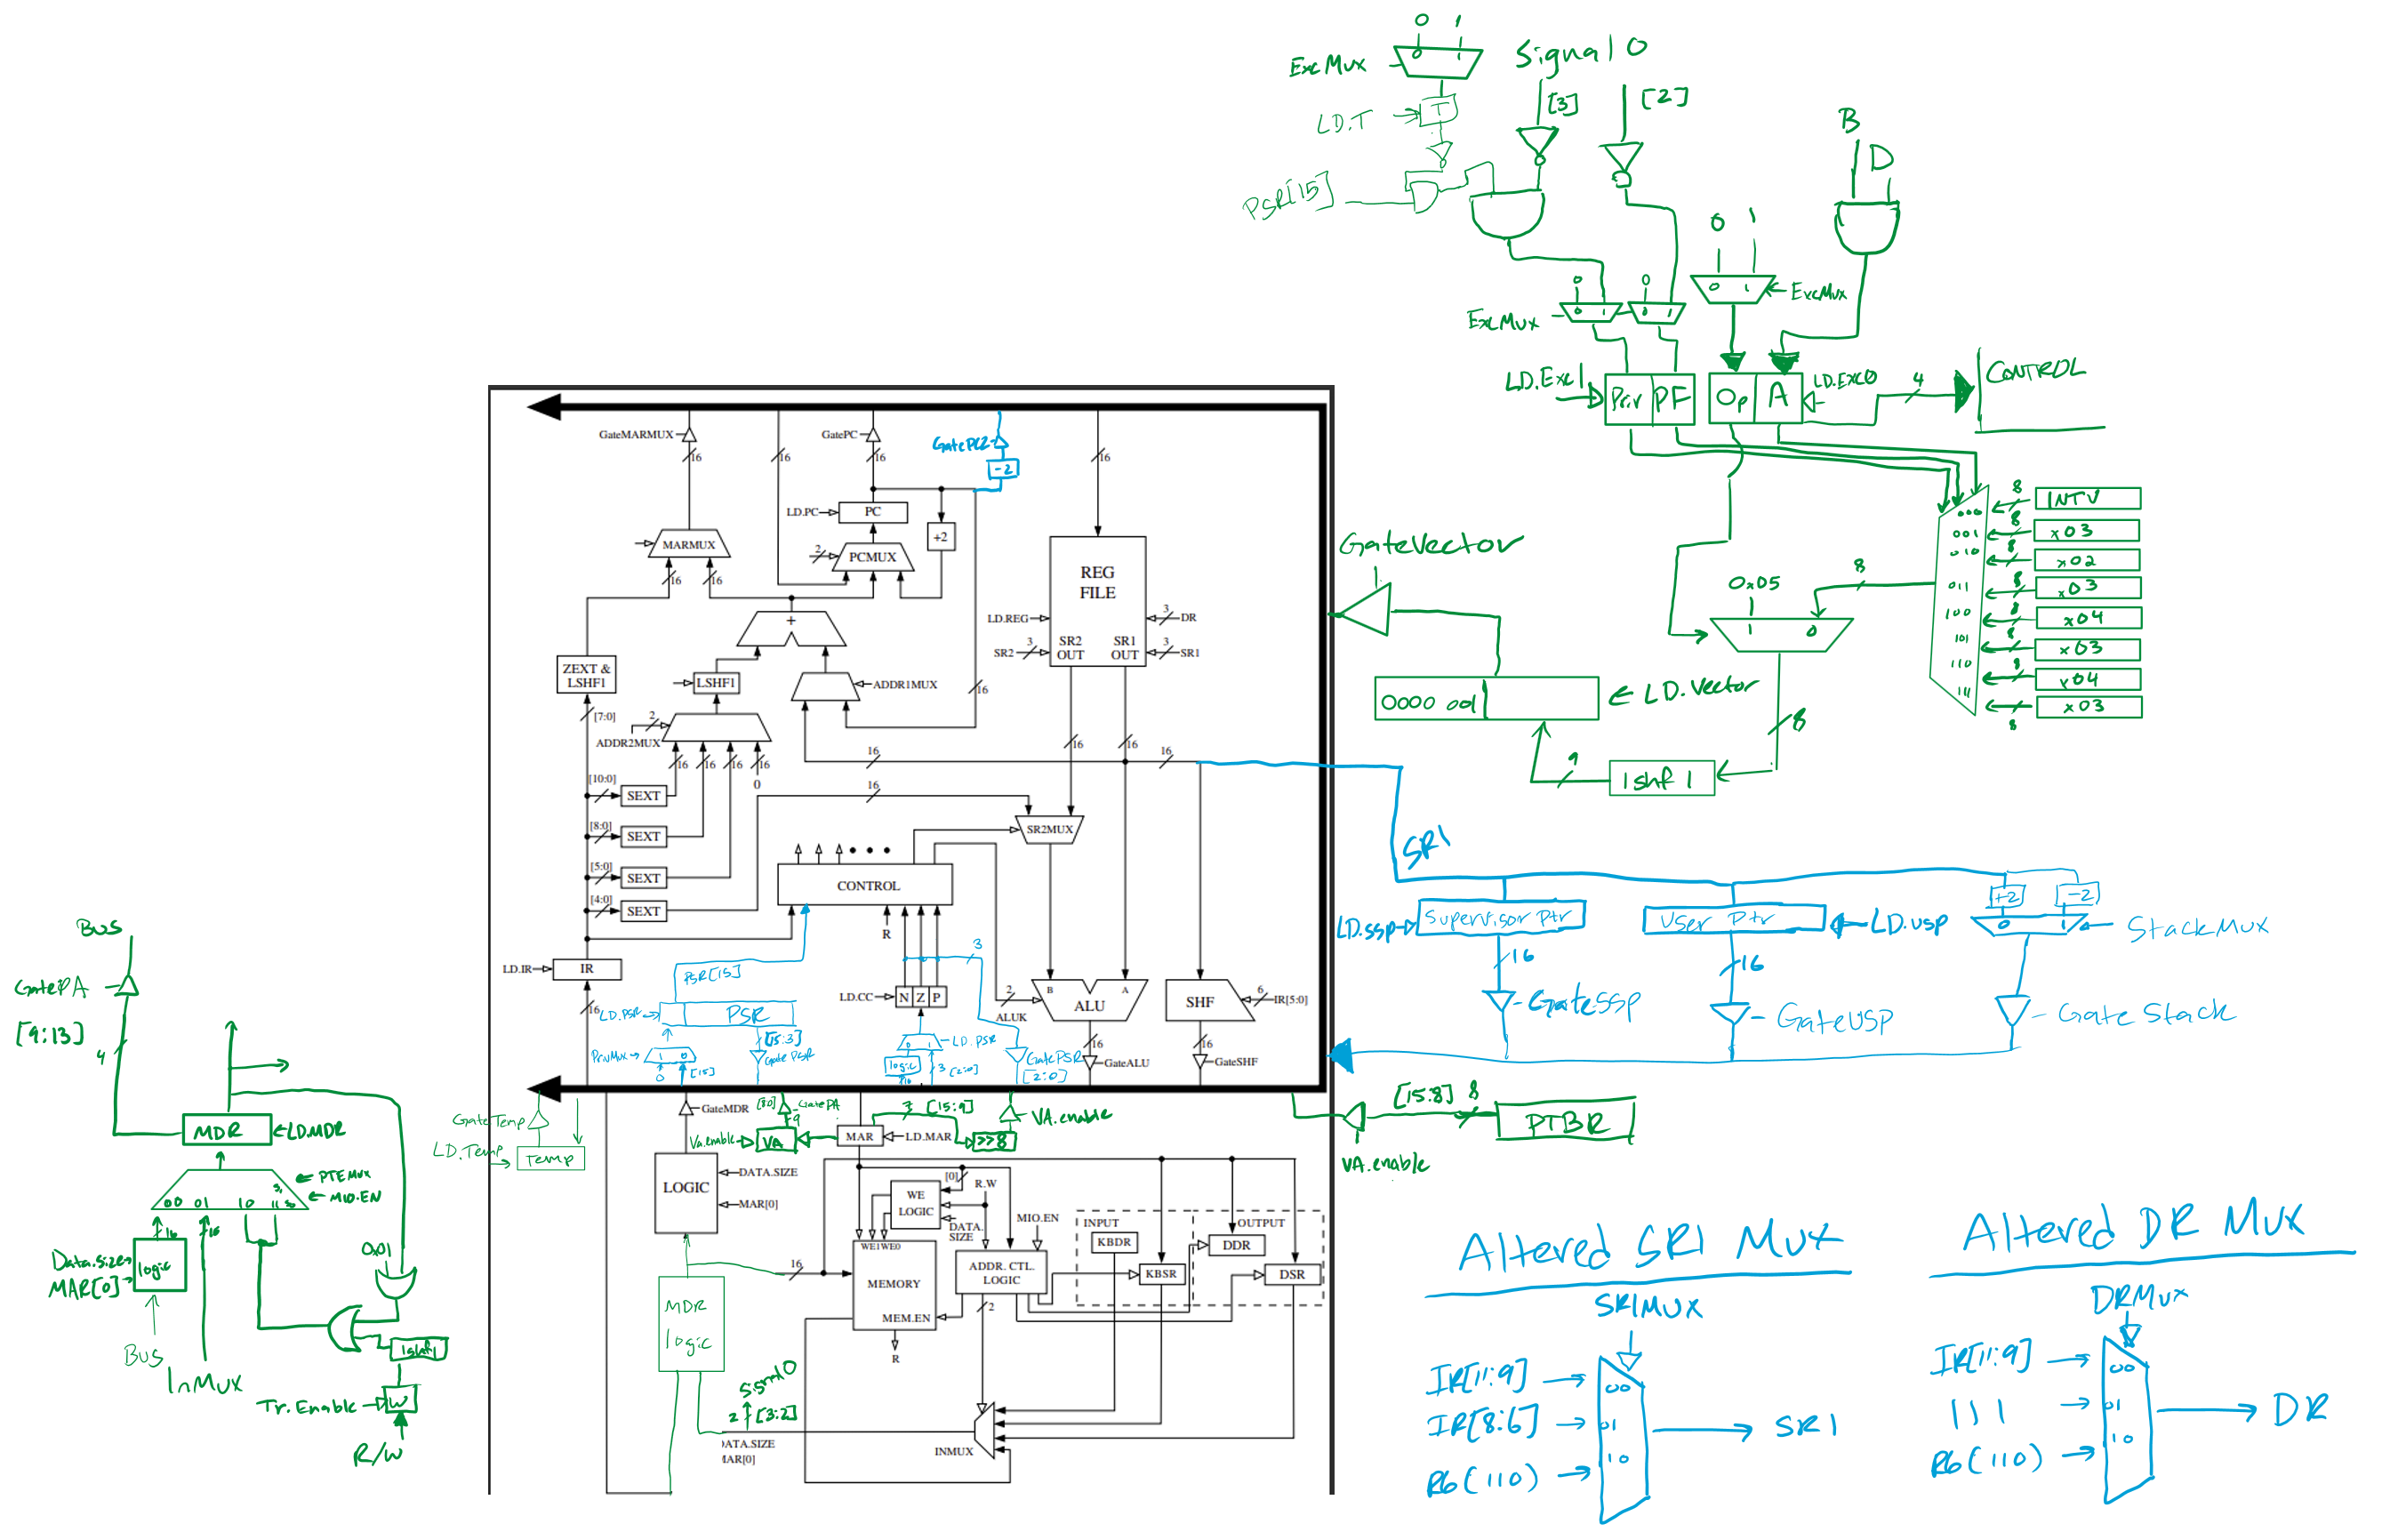 0 1
ExcMux
0 1
Signal 0
LD.T
T
[3]
[2]
B
D
PSR[15]
0 1
0 1
ExcMux
0 0
0 1
0 1
ExcMux
LD.Exc1
Priv PF
Op A
LD.EXC0
4
CONTROL
GateMARMUX
16
16
GatePC
16
GatePC2
-2
16
LD.PC
PC
+2
MARMUX
2
PCMUX
16
16
REG
FILE
LD.REG
3
DR
SR2
3
SR2
OUT
SR1
OUT
3
SR1
+
ZEXT &
LSHF1
LSHF1
ADDR1MUX
16
[7:0]
2
ADDR2MUX
16
16
16
16
0
16
16
16
16
[10:0]
SEXT
16
[8:0]
SEXT
[5:0]
SEXT
[4:0]
SEXT
SR2MUX
CONTROL
R
3
PSR[15]
LD.IR
IR
16
LD.PSR
PSR
[15:3]
Gate PSR
PrivMux
1 0
0
[15]
LD.CC
N Z P
0 1
LD.PSR
logic
16
3 [2:0]
GatePSR
[2:0]
2
ALUK
B
A
ALU
16
GateALU
SHF
6
IR[5:0]
16
GateSHF
GateVector
0000 001
LD.Vector
9
lshf 1
8
0x05
1 0
8
000
001
010
011
100
101
110
111
8
INTV
8
x03
8
x02
8
x03
8
x04
8
x03
8
x04
8
x03
SR1
LD.SSP
Supervisor Ptr
User Ptr
LD.USP
+2
-2
0 1
StackMux
16
GateSSP
16
GateUSP
Gate Stack
[15:8]
8
PTBR
VA.enable
Bus
GatePA
[9:13]
4
MDR
LD.MDR
PTEMUX
MIO.EN
00 01 10 11
16
16
Data.size
MAR[0]
logic
Bus
InMux
0x01
lshf1
Tr.Enable
W
R/W
GateTemp
LD.Temp
Temp
GateMDR
[8:0]
GatePA
9
Va.enable
VA
MAR
LD.MAR
7
[15:9]
>>8
VA.enable
LOGIC
DATA.SIZE
MAR[0]
[0]
WE
LOGIC
R.W
DATA.
SIZE
MIO.EN
INPUT
KBDR
KBSR
OUTPUT
DDR
DSR
16
WE1 WE0
MEMORY
MEM.EN
R
ADDR. CTL.
LOGIC
2
MDR
logic
Signal 0
2
[3:2]
DATA.SIZE
MAR[0]
INMUX
Altered SR1 Mux
SR1MUX
IR[11:9]
00
IR[8:6]
01
R6(110)
10
SR1
Altered DR Mux
DRMux
IR[11:9]
00
111
01
R6(110)
10
DR